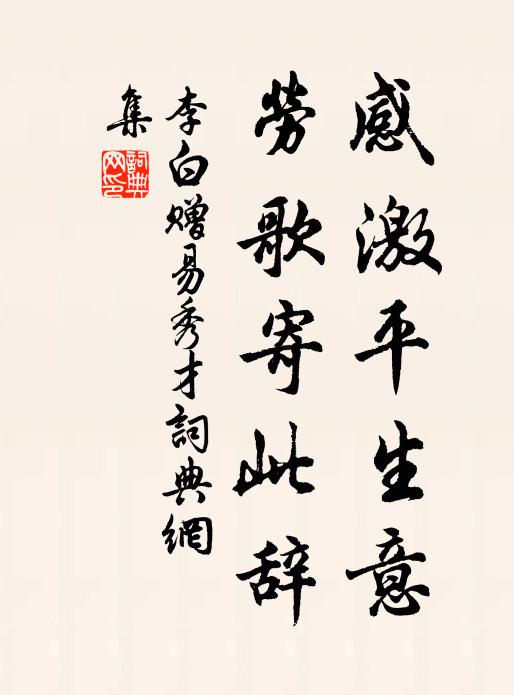 感激平生意
勞歌寄此辞
李白赠易秀才詞典網
集
詞典
网印